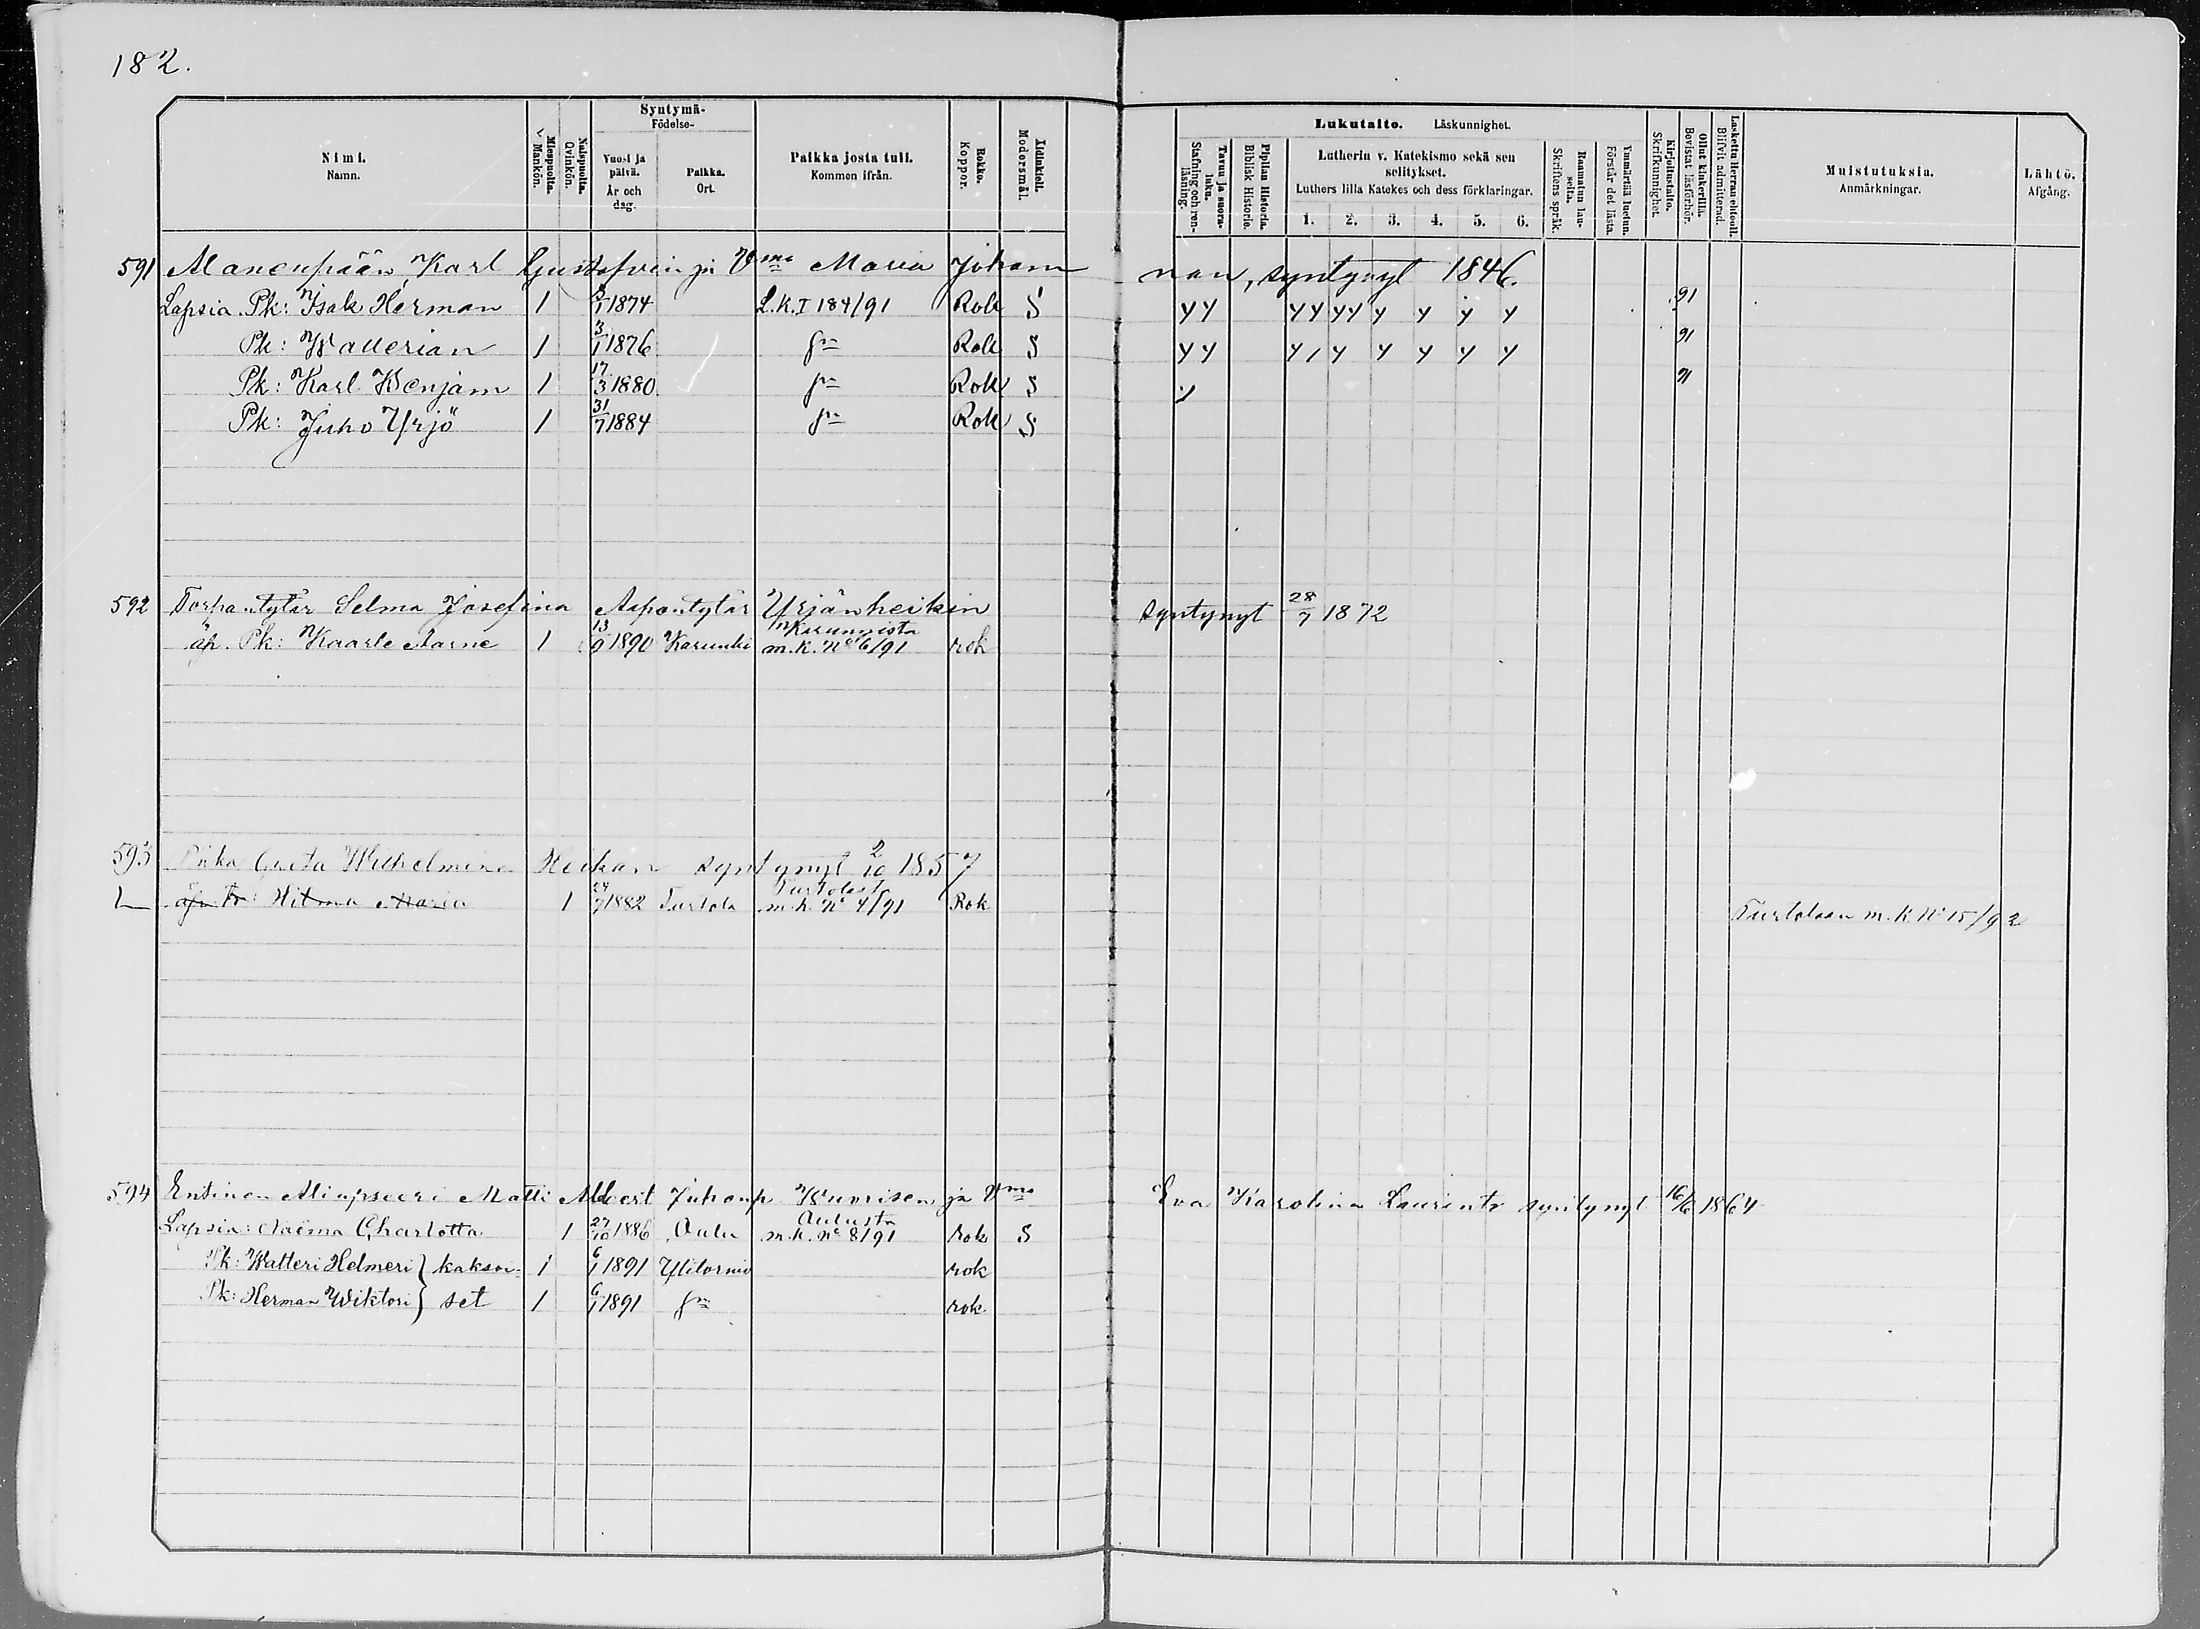 182.
Nimi. Namn.
Miespuolta. Mankön.
Naispuolta. Qvinkön.
Syntymä- Födelse-
Vuosi ja päivä. År och dag.
Paikka. Ort.
Paikka josta tuli. Kommen ifrån.
Rokko. Koppor.
Äidinkieli. Modersmål.
Lukutaito. Läskunnighet.
Tavuu ja suora-luku. Stafning och ren-läsning.
Piplian Historia. Biblisk Historie.
Lutherin v. Katekismo sekä sen selitykset.
Luthers lilla Katekes och dess förklaringar.
1. 2. 3. 4. 5. 6.
Raamatun lau-seita. Skriftens språk.
Ymmärtää luetun. Förstår det lästa.
Kirjoitustaito. Skrifkunnighet.
Ollut kinkerillä. Bevistat läsförhör.
Laskettu Herran ehtooll. Blifvit admitterad.
Muistutuksia. Anmärkningar.
Lähtö. Afgång.
591 Karl Gustafvin ja Vmo Maria Johannan, syntynyt 1846.
Lapsia. Pk: Isak Herman 1 1874 L.K.I 184/91 Rok S 91
Pk: Wallerian 1 3/1 1876 Rok S 91
Pk: Karl Benjam 1 17/3 1880 Rok S 91
Pk: Juho Yrjö 1 31/7 1884 Rok S
592 Torpantytär Selma Josefina Aapontytär Yrjänheikin syntynyt 28/7 1872
äp. Pk: Kaarle Aarne 1 13/9 1890 Karunki Karungista m.k. No 6/91 rok
593 Piika Greta Wilhelmina Heikan syntynyt 2/10 1857
äp. Hilma Maria 1 24/7 1882 Turtola Turtolast m.k. No 4/91 Rok Turtolaan m.k. No 15/92
594 Entinen Aliupseeri Matti Albert Juhanp. Wuorisen ja Vmo Eva Karolina Laurintr syntynyt 16/6 1864
Lapsia: Naëma Charlotta 1 27/10 1886 Oulu Oulusta m.k. No 8/91 rok S
Pk: Walteri Helmeri } kaksoi- 1 6/1 1891 Ylitornio rok
Pk: Herman Wiktori } set 1 6/1 1891 rok